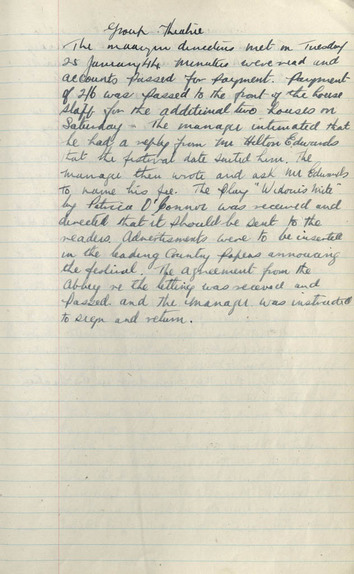 Group Theatre
The managing directors met on Tuesday
25 January 44. Minutes were read and
accounts passed for payment. Payment
of 2/6 was passed to the front of the house
staff for the additional two houses on
Saturday - The manager intimated that
he had a reply from Mr Hilton Edwards
that the festival date suited him. The
manager then wrote and ask Mr Edwards
to name his fee. The Play "Widow's Mite"
by Patricia O'Connor was received and
directed that it should be sent to the
readers. Advertisments were to be inserted
in the leading Country Papers announcing
the festival. The agreement from the
Abbey re the letting was received and
passed and the manager was instructed
to sign and return.